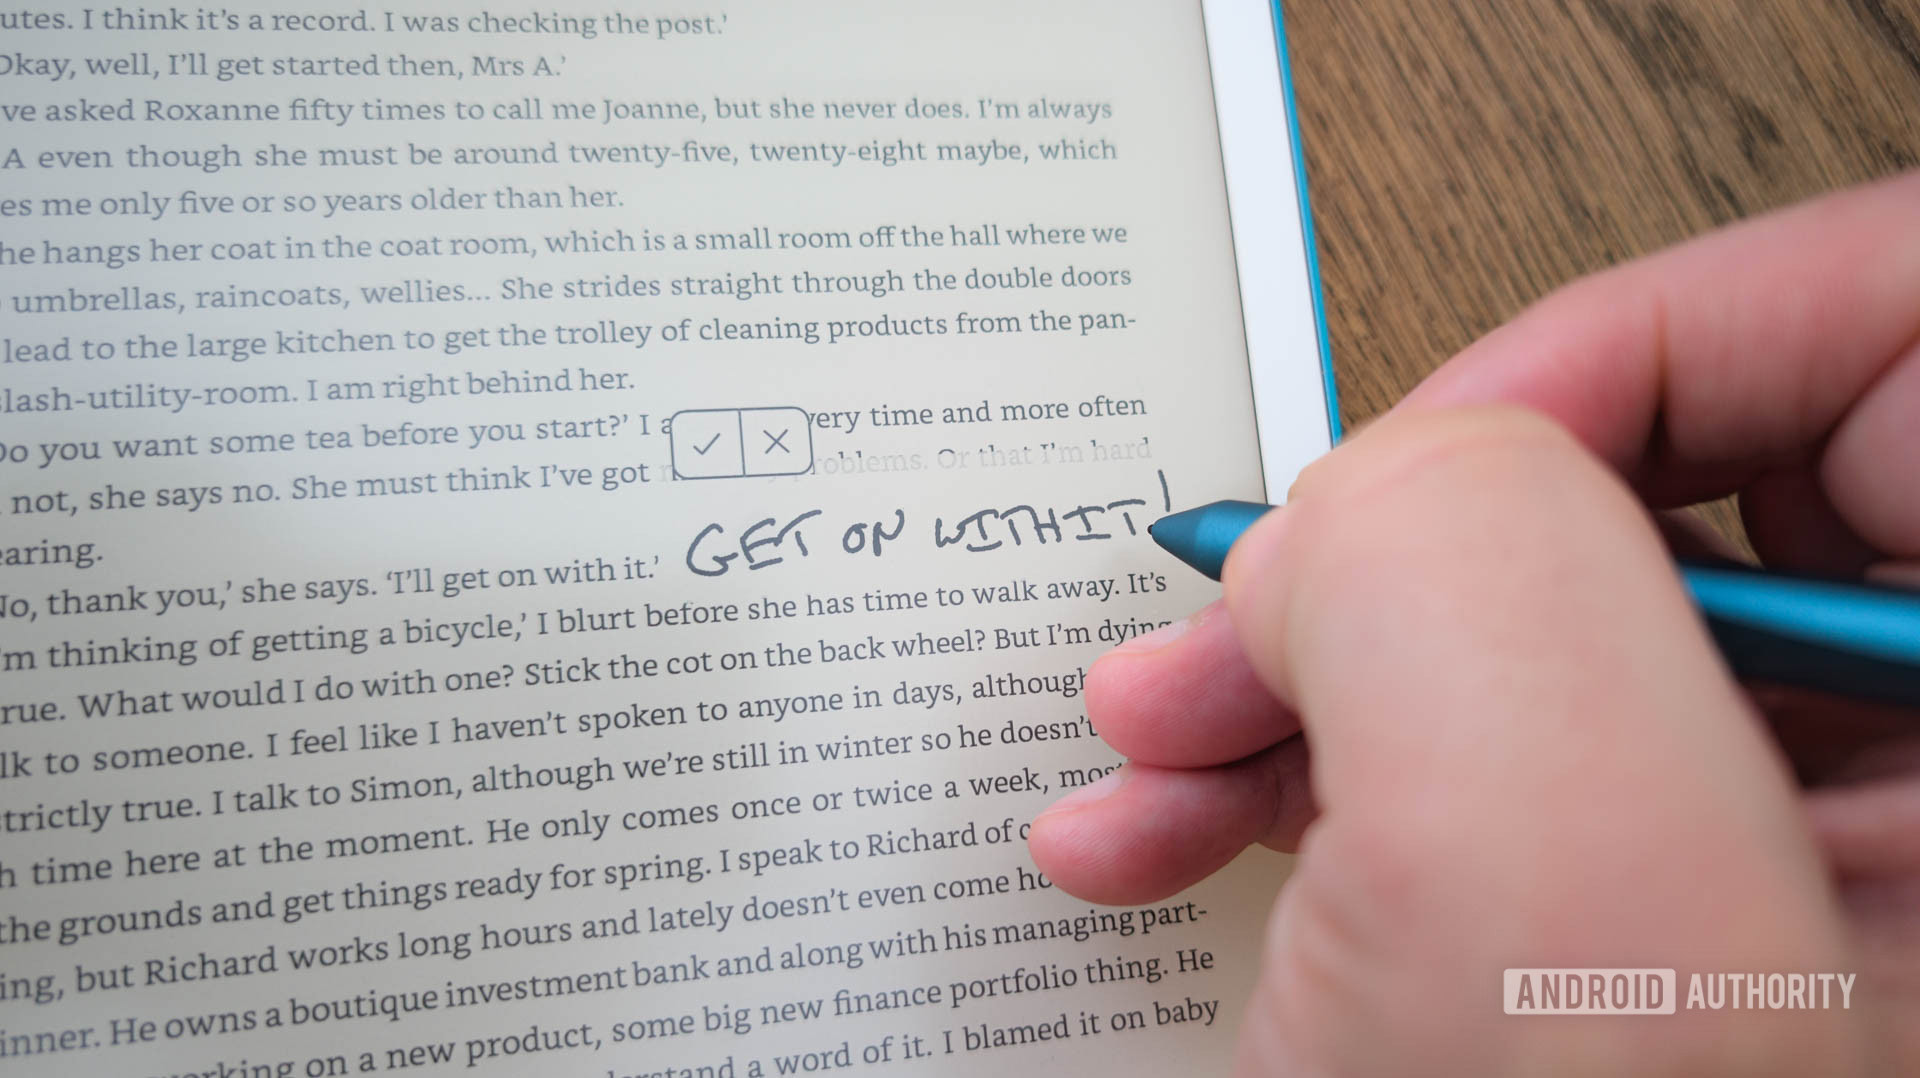 utes. I think it's a record. I was checking the post.'
Okay, well, I'll get started then, Mrs A.'
ve asked Roxanne fifty times to call me Joanne, but she never does. I'm always
A even though she must be around twenty-five, twenty-eight maybe, which
es me only five or so years older than her.
he hangs her coat in the coat room, which is a small room off the hall where we
umbrellas, raincoats, wellies... She strides straight through the double doors
lead to the large kitchen to get the trolley of cleaning products from the pan-
slash-utility-room. I am right behind her.
Do you want some tea before you start?' I a very time and more often
not, she says no. She must think I've got roblems. Or that I'm hard
earing.
No, thank you,' she says. 'I'll get on with it.' GET ON WITH IT!
'm thinking of getting a bicycle,' I blurt before she has time to walk away. It's
rue. What would I do with one? Stick the cot on the back wheel? But I'm dying
lk to someone. I feel like I haven't spoken to anyone in days, although
trictly true. I talk to Simon, although we're still in winter so he doesn't
h time here at the moment. He only comes once or twice a week, mos
the grounds and get things ready for spring. I speak to Richard of c
ing, but Richard works long hours and lately doesn't even come ho
inner. He owns a boutique investment bank and along with his managing part-
orking on a new product, some big new finance portfolio thing. He
erstand a word of it. I blamed it on baby
ANDROID AUTHORITY